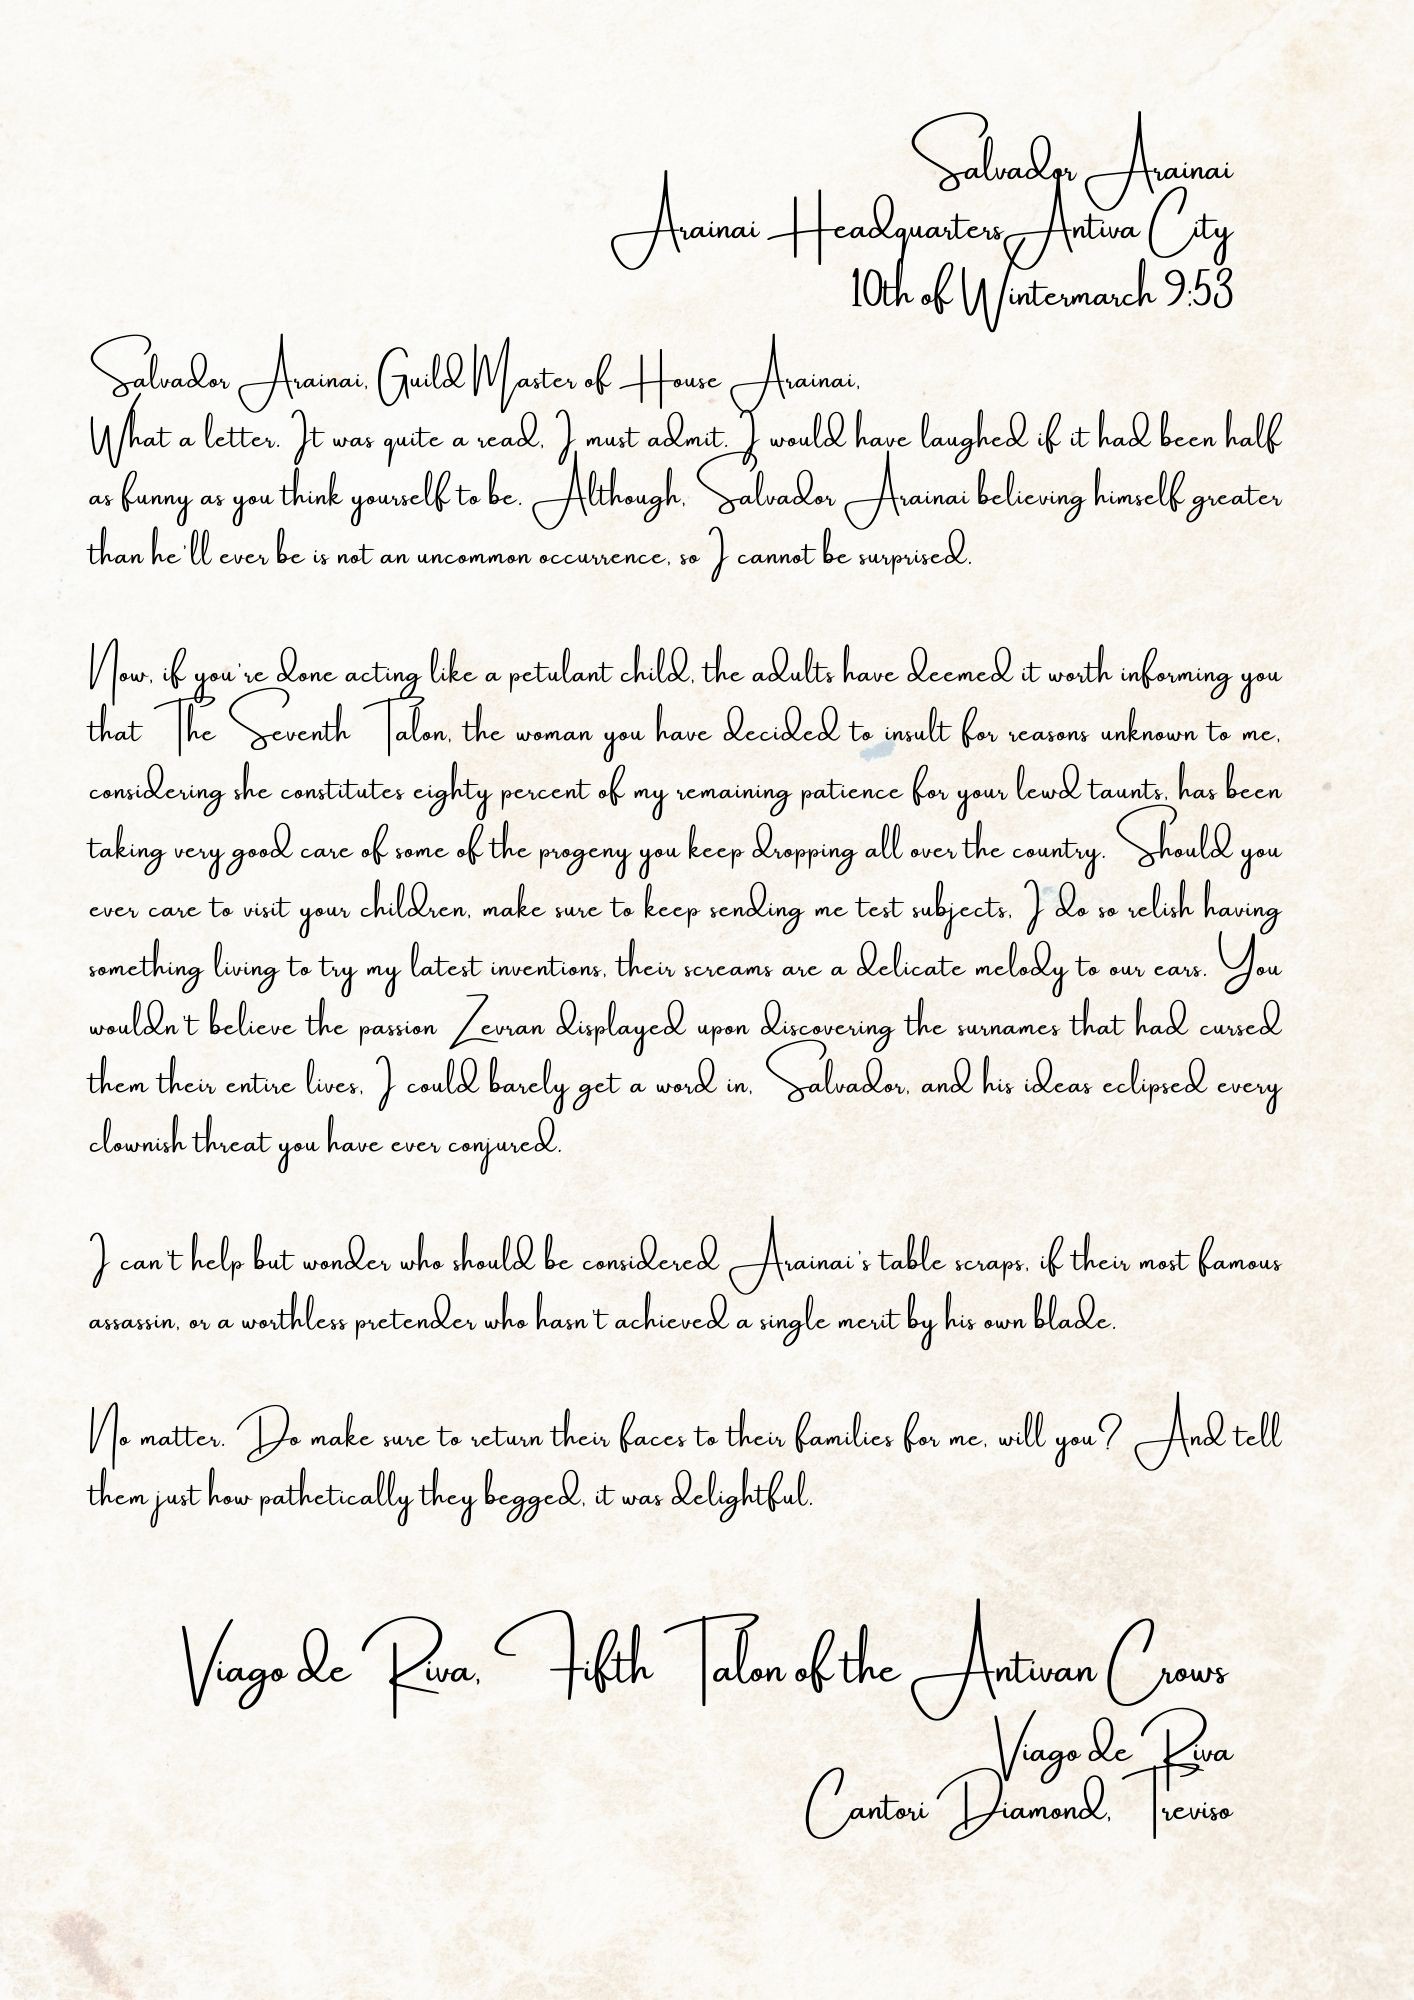 Salvador Arainai
Arainai Headquarters, Antiva City
10th of Wintermarch 9:53
Salvador Arainai, Guild Master of House Arainai,
What a letter. It was quite a read, I must admit. I would have laughed if it had been half
as funny as you think yourself to be. Although, Salvador Arainai believing himself greater
than he'll ever be is not an uncommon occurrence, so I cannot be surprised.
Now, if you're done acting like a petulant child, the adults have deemed it worth informing you
that The Seventh Talon, the woman you have decided to insult for reasons unknown to me,
considering she constitutes eighty percent of my remaining patience for your lewd taunts, has been
taking very good care of some of the progeny you keep dropping all over the country. Should you
ever care to visit your children, make sure to keep sending me test subjects, I do so relish having
something living to try my latest inventions, their screams are a delicate melody to our ears. You
wouldn't believe the passion Zevran displayed upon discovering the surnames that had cursed
them their entire lives, I could barely get a word in, Salvador, and his ideas eclipsed every
clownish threat you have ever conjured.
I can't help but wonder who should be considered Arainai's table scraps, if their most famous
assassin, or a worthless pretender who hasn't achieved a single merit by his own blade.
No matter. Do make sure to return their faces to their families for me, will you? And tell
them just how pathetically they begged, it was delightful.
Viago de Riva, Fifth Talon of the Antivan Crows
Viago de Riva
Cantori Diamond, Treviso